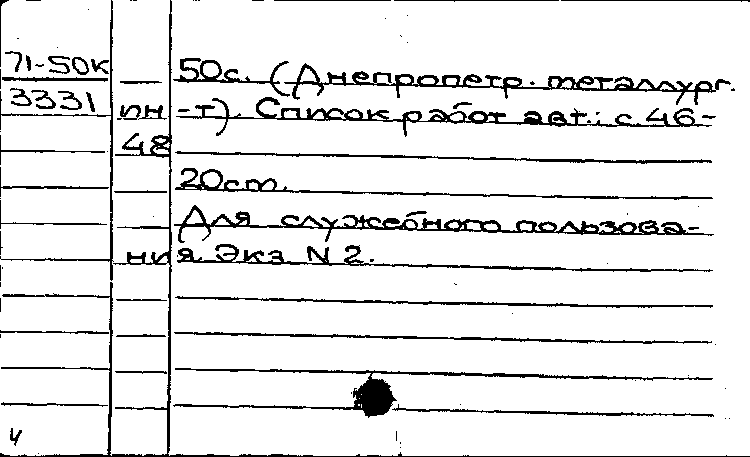 71-50к 50с. (Днепропетр. металлург.
3331 ин-т). Список работ авт.: с. 46-
48
20 ст.
Для служебного пользова-
ния Экз N 2.
4